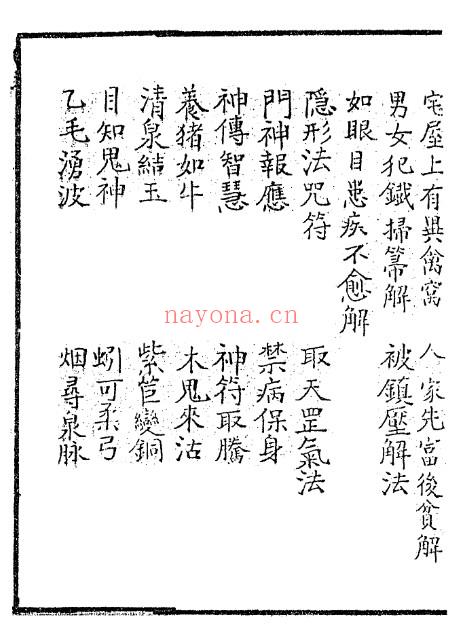 宅屋上有異禽窩　人家先富後貧解
男女犯鐵掃箒解　被鎮壓解法
如眼目患疾不愈解
隠形法咒符　取天罡氣法
門神報應　禁病保身
神傳智慧　神符取騰
養猪如牛　木鬼來沽
清泉結玉　紫笆變銅
目知鬼神　蚓可柔弓
乙毛湧波　烟尋泉脉
nayona.cn